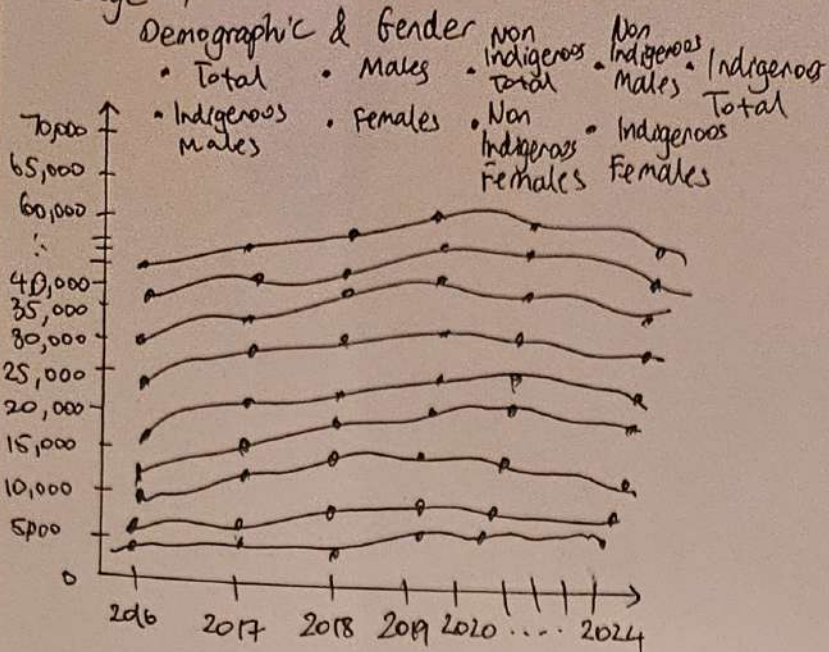 Demographic & Gender
• Total • Males • Non Indigenoos Total • Non Indigenoos Males • Indigenoos Total
• Indigenoos Males • Females • Non Indigenoos Females • Indigenoos Females
70,000
65,000
60,000
40,000
35,000
30,000
25,000
20,000
15,000
10,000
5000
0
2016 2017 2018 2019 2020 ..... 2024